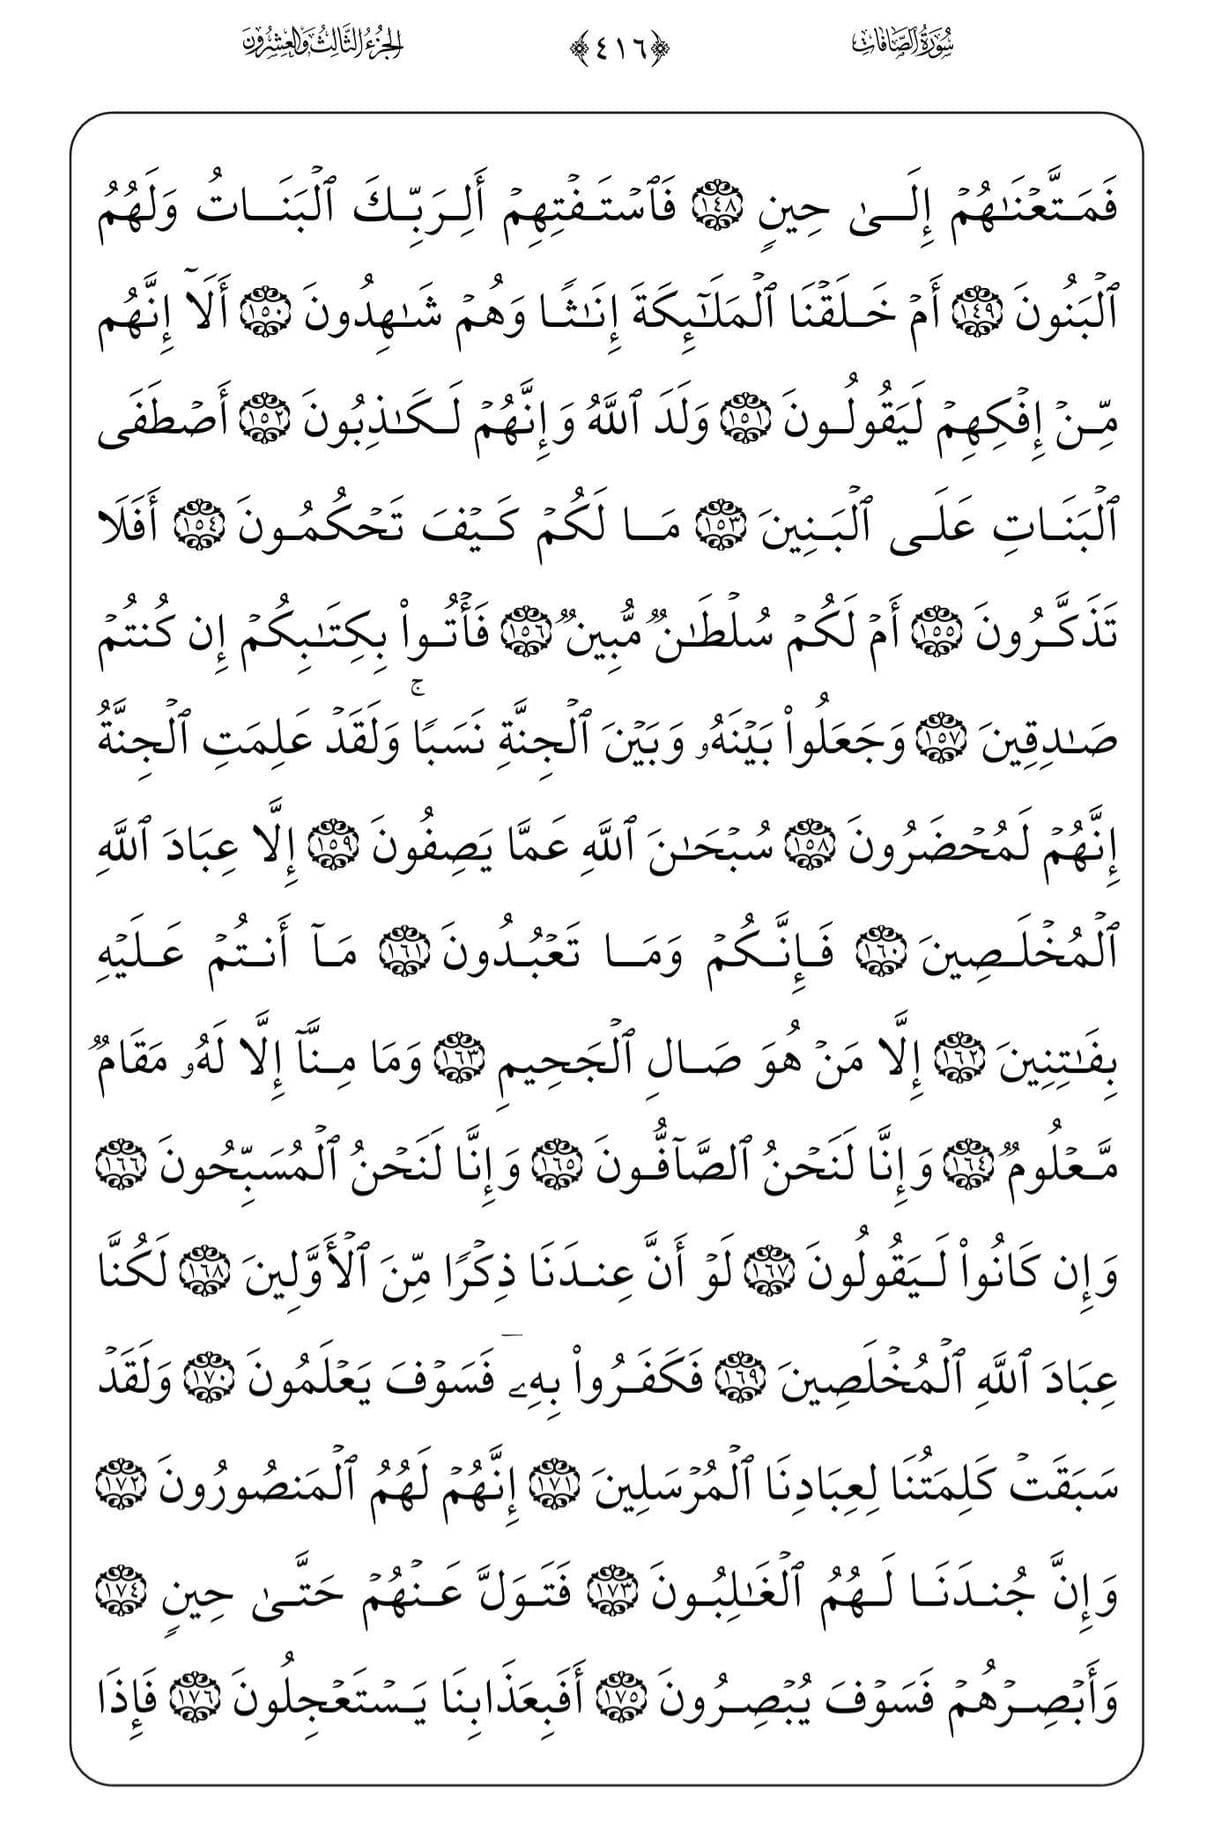 سُورَةُ الصَّافَّاتِ ﴿٤١٦﴾ الجُزْءُ الثَّالِثُ وَالعِشْرُونَ
فَمَتَّعۡنَٰهُمۡ إِلَىٰ حِينٖ ١٤٨ فَٱسۡتَفۡتِهِمۡ أَلِرَبِّكَ ٱلۡبَنَاتُ وَلَهُمُ
ٱلۡبَنُونَ ١٤٩ أَمۡ خَلَقۡنَا ٱلۡمَلَٰٓئِكَةَ إِنَٰثٗا وَهُمۡ شَٰهِدُونَ ١٥٠ أَلَآ إِنَّهُم
مِّنۡ إِفۡكِهِمۡ لَيَقُولُونَ ١٥١ وَلَدَ ٱللَّهُ وَإِنَّهُمۡ لَكَٰذِبُونَ ١٥٢ أَصۡطَفَى
ٱلۡبَنَاتِ عَلَى ٱلۡبَنِينَ ١٥٣ مَا لَكُمۡ كَيۡفَ تَحۡكُمُونَ ١٥٤ أَفَلَا
تَذَكَّرُونَ ١٥٥ أَمۡ لَكُمۡ سُلۡطَٰنٞ مُّبِينٞ ١٥٦ فَأۡتُواْ بِكِتَٰبِكُمۡ إِن كُنتُمۡ
صَٰدِقِينَ ١٥٧ وَجَعَلُواْ بَيۡنَهُۥ وَبَيۡنَ ٱلۡجِنَّةِ نَسَبٗاۚ وَلَقَدۡ عَلِمَتِ ٱلۡجِنَّةُ
إِنَّهُمۡ لَمُحۡضَرُونَ ١٥٨ سُبۡحَٰنَ ٱللَّهِ عَمَّا يَصِفُونَ ١٥٩ إِلَّا عِبَادَ ٱللَّهِ
ٱلۡمُخۡلَصِينَ ١٦٠ فَإِنَّكُمۡ وَمَا تَعۡبُدُونَ ١٦١ مَآ أَنتُمۡ عَلَيۡهِ
بِفَٰتِنِينَ ١٦٢ إِلَّا مَنۡ هُوَ صَالِ ٱلۡجَحِيمِ ١٦٣ وَمَا مِنَّآ إِلَّا لَهُۥ مَقَامٞ
مَّعۡلُومٞ ١٦٤ وَإِنَّا لَنَحۡنُ ٱلصَّآفُّونَ ١٦٥ وَإِنَّا لَنَحۡنُ ٱلۡمُسَبِّحُونَ ١٦٦
وَإِن كَانُواْ لَيَقُولُونَ ١٦٧ لَوۡ أَنَّ عِندَنَا ذِكۡرٗا مِّنَ ٱلۡأَوَّلِينَ ١٦٨ لَكُنَّا
عِبَادَ ٱللَّهِ ٱلۡمُخۡلَصِينَ ١٦٩ فَكَفَرُواْ بِهِۦۖ فَسَوۡفَ يَعۡلَمُونَ ١٧٠ وَلَقَدۡ
سَبَقَتۡ كَلِمَتُنَا لِعِبَادِنَا ٱلۡمُرۡسَلِينَ ١٧١ إِنَّهُمۡ لَهُمُ ٱلۡمَنصُورُونَ ١٧٢
وَإِنَّ جُندَنَا لَهُمُ ٱلۡغَٰلِبُونَ ١٧٣ فَتَوَلَّ عَنۡهُمۡ حَتَّىٰ حِينٖ ١٧٤
وَأَبۡصِرۡهُمۡ فَسَوۡفَ يُبۡصِرُونَ ١٧٥ أَفَبِعَذَابِنَا يَسۡتَعۡجِلُونَ ١٧٦ فَإِذَا